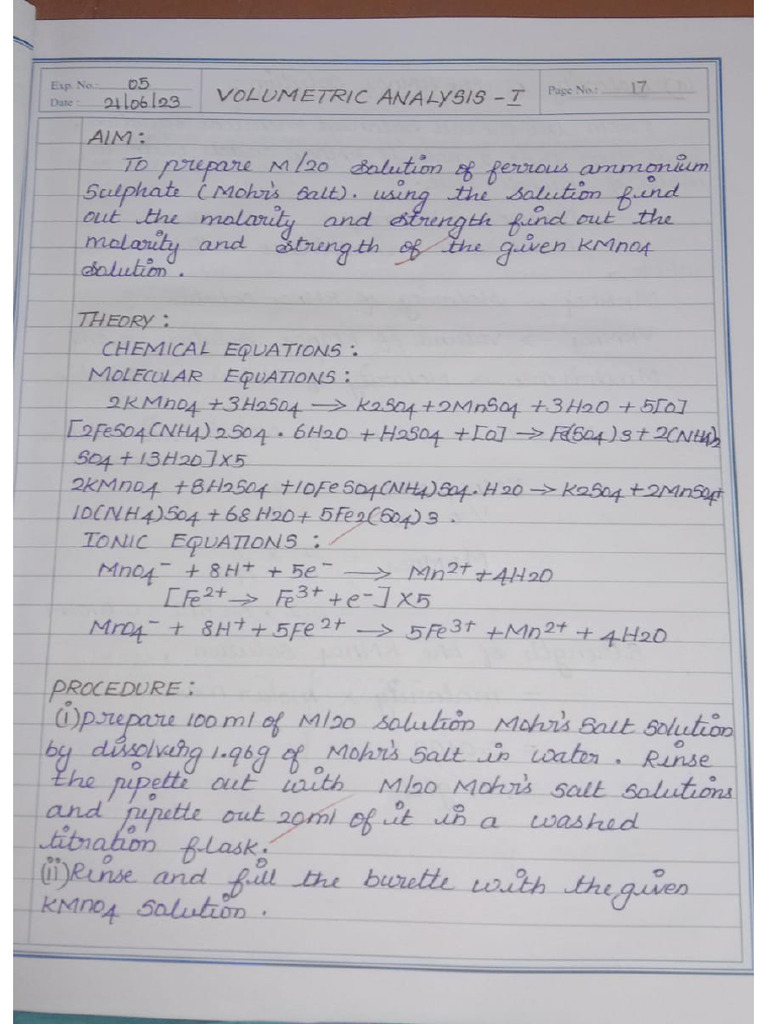 Exp. No.: 05
Date: 21/06/23
VOLUMETRIC ANALYSIS - I
Page No.: 17
AIM:
To prepare M/20 solution of ferrous ammonium
Sulphate (Mohr's Salt). using the solution find
out the molarity and strength find out the
molarity and strength of the given KMnO4
solution.
THEORY:
CHEMICAL EQUATIONS:
MOLECULAR EQUATIONS:
2KMnO4 + 3H2SO4 → K2SO4 + 2MnSO4 + 3H2O + 5[O]
[2FeSO4(NH4)2SO4 · 6H2O + H2SO4 + [O] → Fe(SO4)3 + 2(NH4)2
SO4 + 13H2O] X5
2KMnO4 + 8H2SO4 + 10FeSO4(NH4)SO4·H2O → K2SO4 + 2MnSO4+
10(NH4)SO4 + 68H2O + 5Fe2(SO4)3.
IONIC EQUATIONS:
MnO4⁻ + 8H⁺ + 5e⁻ → Mn²⁺ + 4H2O
[Fe²⁺ → Fe³⁺ + e⁻] X5
MnO4⁻ + 8H⁺ + 5Fe²⁺ → 5Fe³⁺ + Mn²⁺ + 4H2O
PROCEDURE:
(i) prepare 100ml of M/20 solution Mohr's Salt solution
by dissolving 1.96g of Mohr's Salt in water. Rinse
the pipette out with M/20 Mohr's salt solutions
and pipette out 20ml of it in a washed
titration flask.
(ii) Rinse and fill the burette with the given
KMnO4 solution.